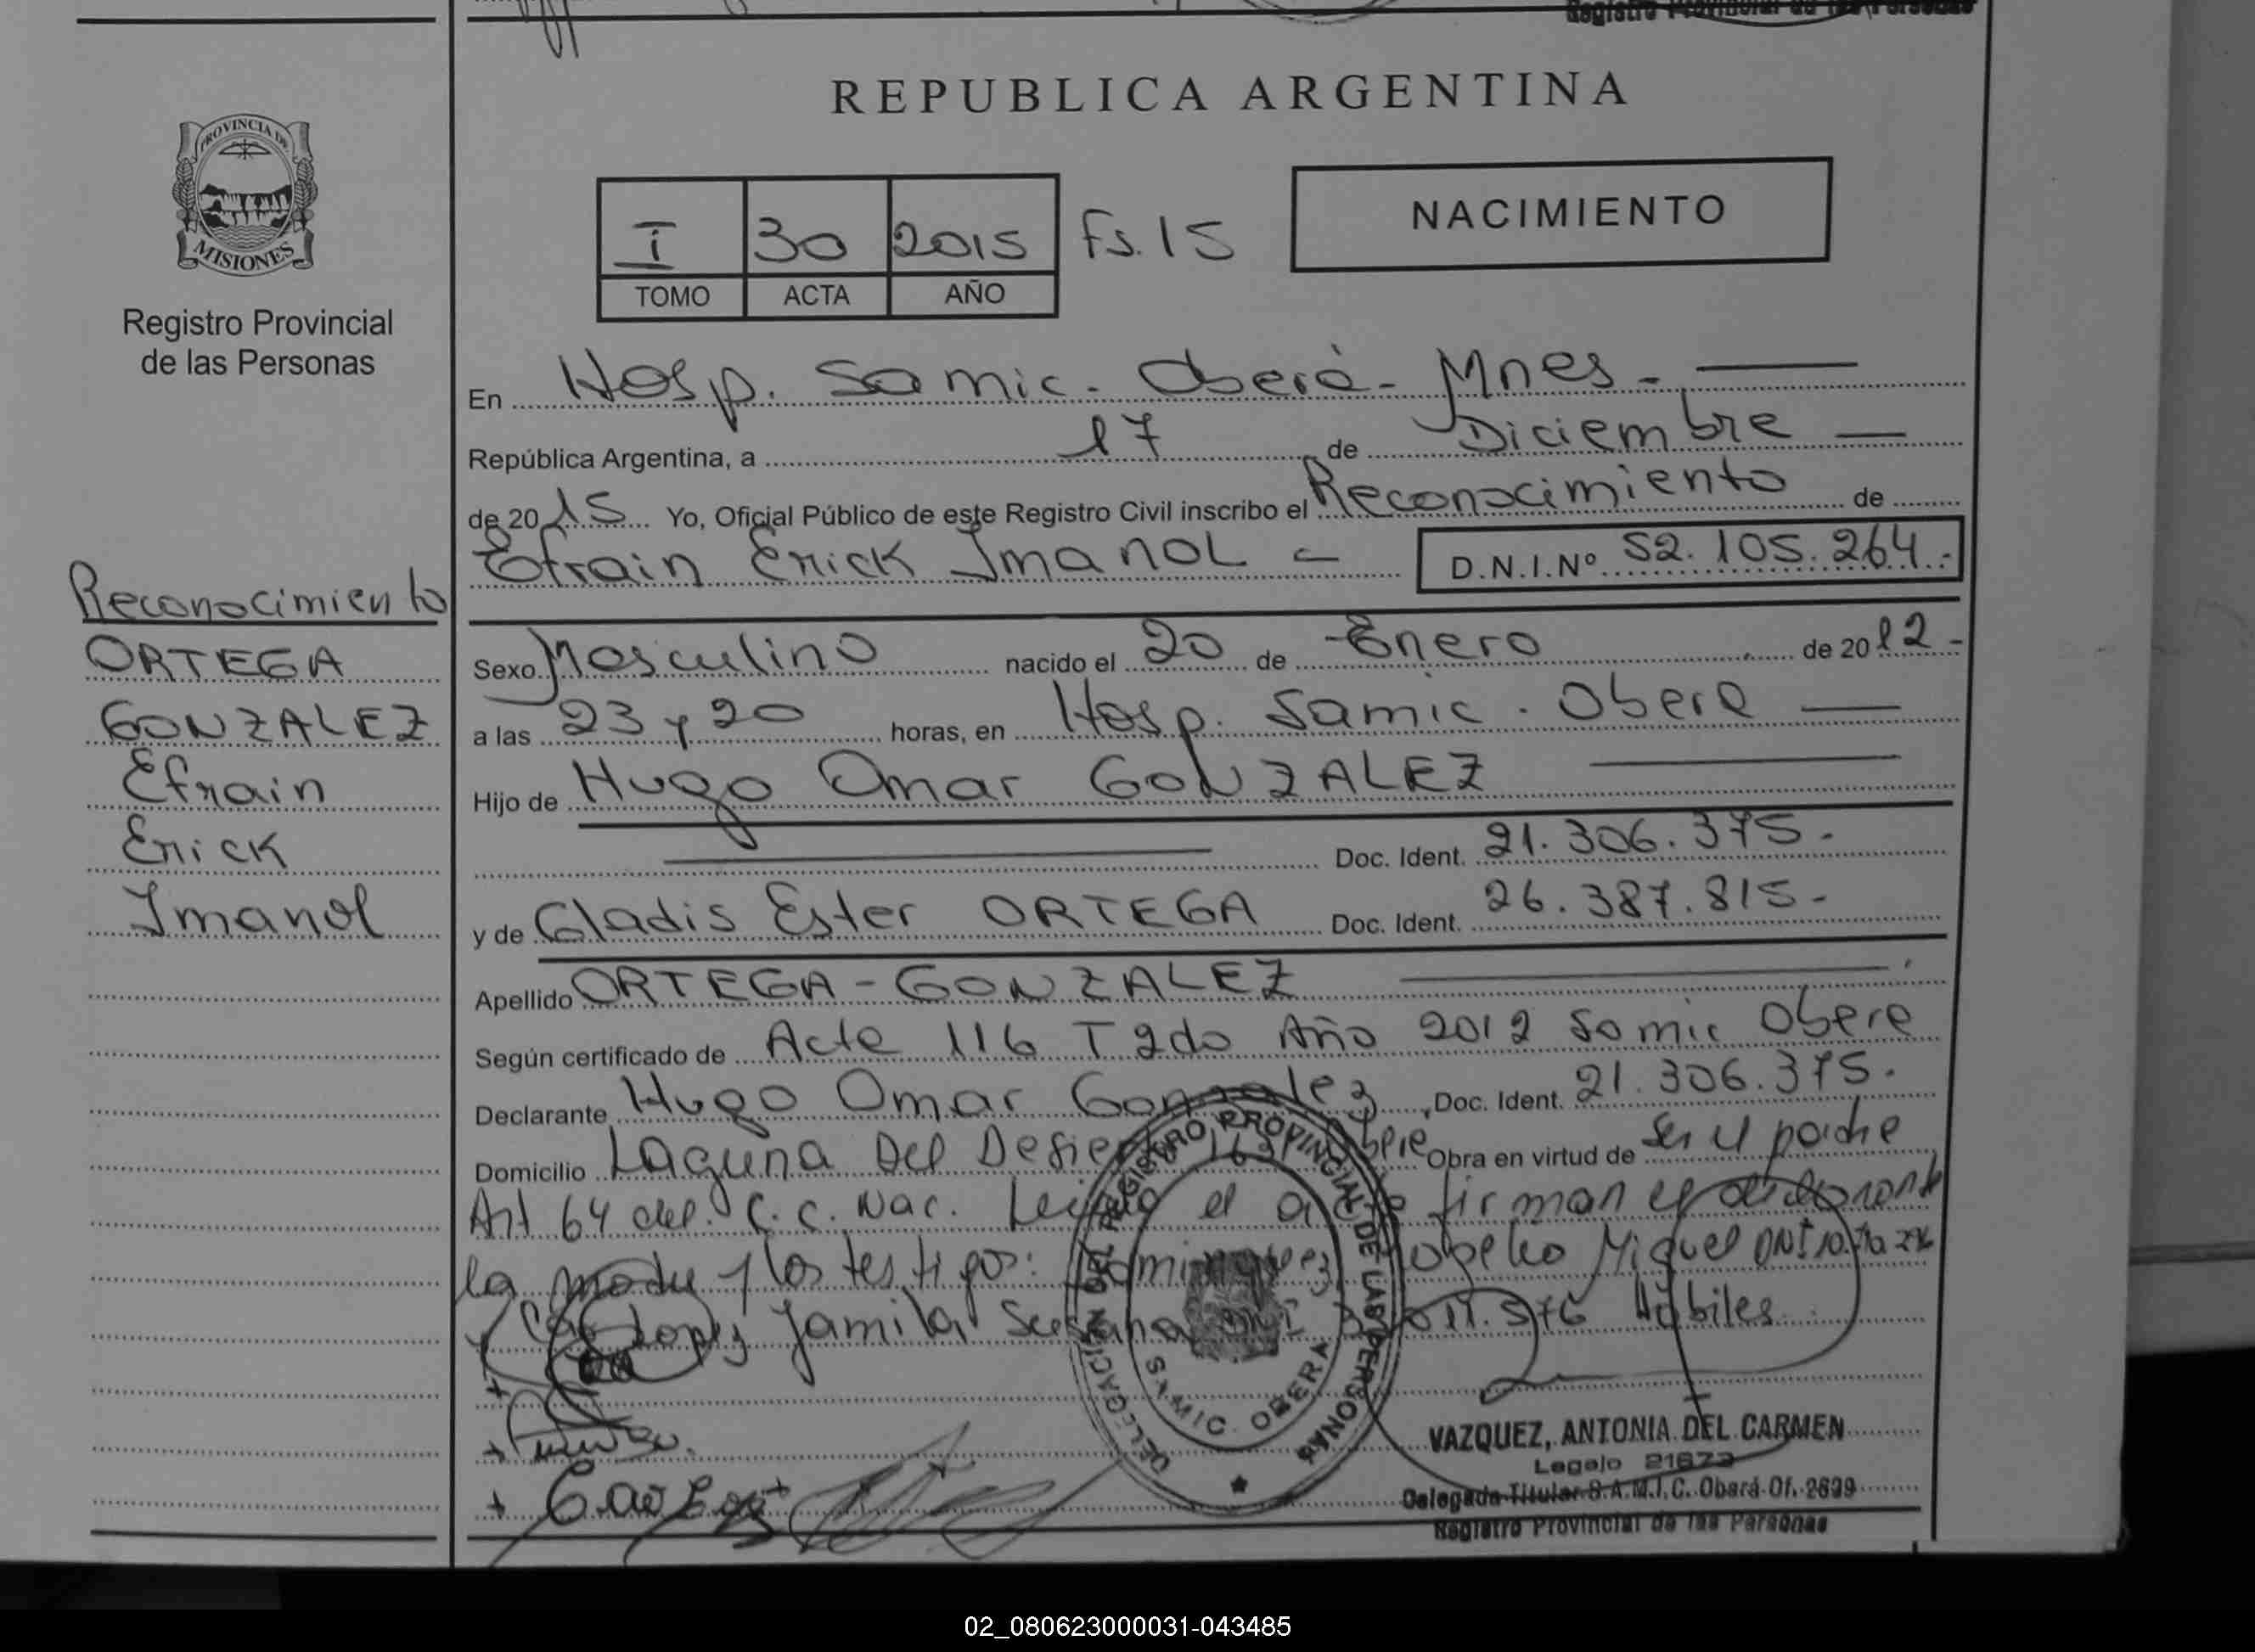 Registro Provincial de las Personas
REPUBLICA ARGENTINA
PROVINCIA DE
MISIONES
Registro Provincial
de las Personas
I 30 2015 Fs. 15
TOMO ACTA AÑO
NACIMIENTO
En Hosp. Samic. Oberá - Mnes -
República Argentina, a 17 de Diciembre
de 2015 Yo, Oficial Público de este Registro Civil inscribo el Reconocimiento de
Efrain Erick Imanol D.N.I.Nº 52.105.264.-
Reconocimiento
ORTEGA
GONZALEZ
Efrain
Erick
Imanol
Sexo Masculino nacido el 20 de Enero de 2012-
a las 23 y 20 horas, en Hosp. Samic. Obera
Hijo de Hugo Omar GONZALEZ
Doc. Ident. 21.306.375.-
y de Gladis Ester ORTEGA Doc. Ident. 26.387.815-
Apellido ORTEGA-GONZALEZ
Según certificado de Acta 116 T 2do Año 2012 Samic Obera
Declarante Hugo Omar Gonzalez, Doc. Ident. 21.306.375.
Domicilio Laguna Del Desierto Obra en virtud de Ser el padre
Art 64 del C.C. Nac. Leida el acta firman el declarante
la madre y los testigos: Miguel DNI
Yamila Susana Hábiles
DELEGACION DEL REGISTRO PROVINCIAL DE LAS PERSONAS
SAMIC. OBERA
VAZQUEZ, ANTONIA DEL CARMEN
Legajo 21673
Delegada Titular S.A.M.I.C. Oberá Of. 2699
Registro Provincial de las Personas
02_080623000031-043485